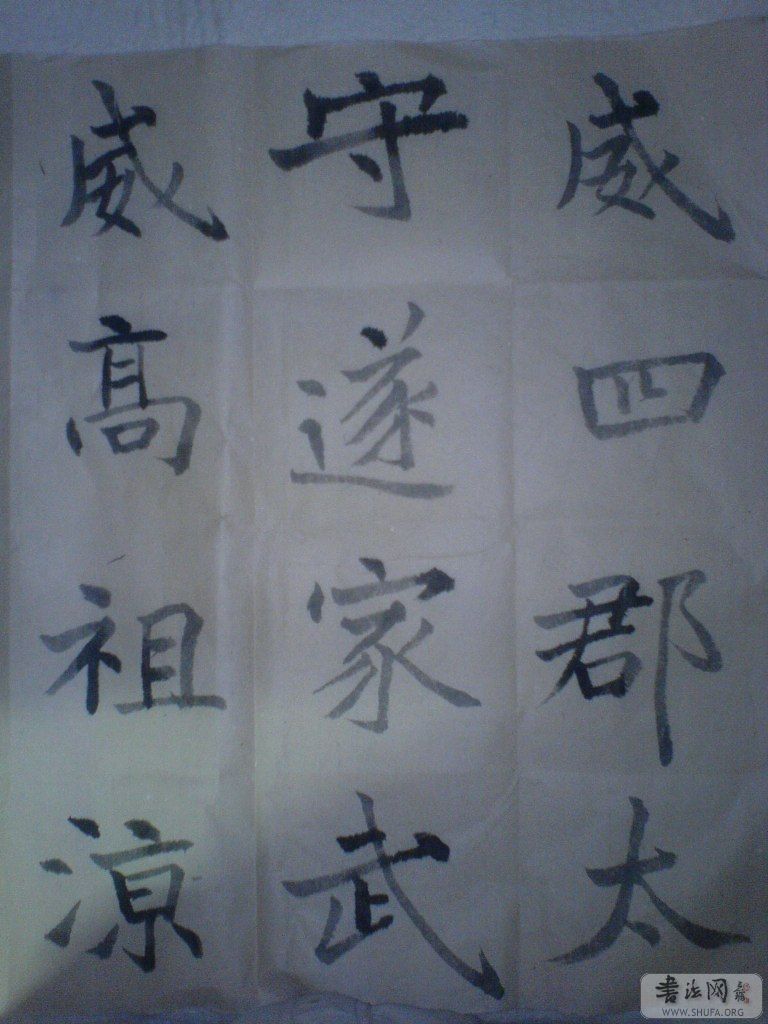 威四郡太
守遂家武
威高祖涼
书法网
WWW.SHUFA.ORG